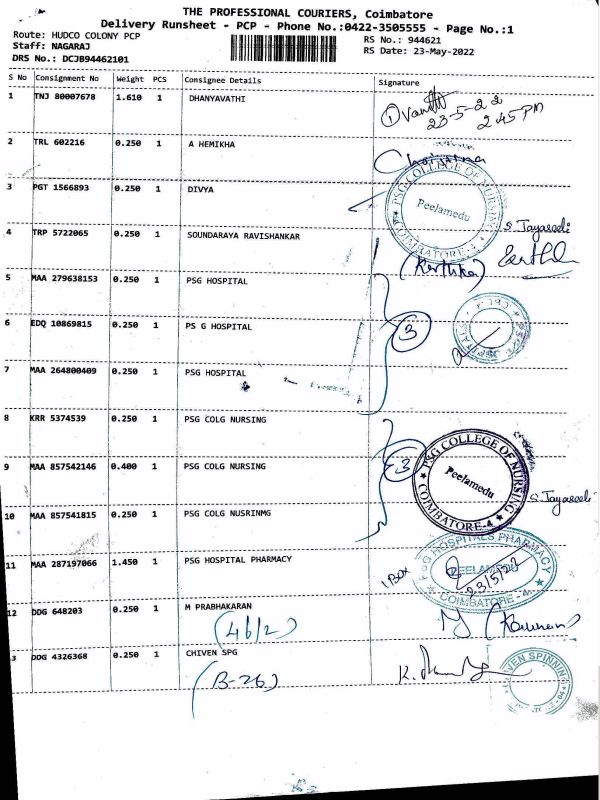 THE PROFESSIONAL COURIERS, Coimbatore
Delivery Runsheet - PCP - Phone No.:0422-3505555 - Page No.:1
Route: HUDCO COLONY PCP
RS No.: 944621
Staff: NAGARAJ
RS Date: 23-May-2022
DRS No.: DCJB94462101
S No Consignment No Weight PCS Consignee Details Signature
1 TNJ 80007678 1.610 1 DHANYAVATHI
23-5-22
2.45PM
2 TRL 602216 0.250 1 A HEMIKHA
3 PGT 1566893 0.250 1 DIVYA
PSG COLLEGE OF NURSING
Peelamedu
COIMBATORE-4
S. Jayaseeli
4 TRP 5722065 0.250 1 SOUNDARAYA RAVISHANKAR
5 MAA 279638153 0.250 1 PSG HOSPITAL
6 EDQ 10869815 0.250 1 PS G HOSPITAL
3
7 MAA 264800409 0.250 1 PSG HOSPITAL
8 KRR 5374539 0.250 1 PSG COLG NURSING
9 MAA 857542146 0.400 1 PSG COLG NURSING
3
PSG COLLEGE OF NURSING
Peelamedu
COIMBATORE-4
S. Jayaseeli
10 MAA 857541815 0.250 1 PSG COLG NUSRINMG
11 MAA 287197066 1.450 1 PSG HOSPITAL PHARMACY
1 BOX
PSG HOSPITALS PHARMACY
PEELAMEDU
23/5/22
COIMBATORE-4
12 DDG 648203 0.250 1 M PRABHAKARAN
(46/2)
13 DDG 4326368 0.250 1 CHIVEN SPG
(B-26)